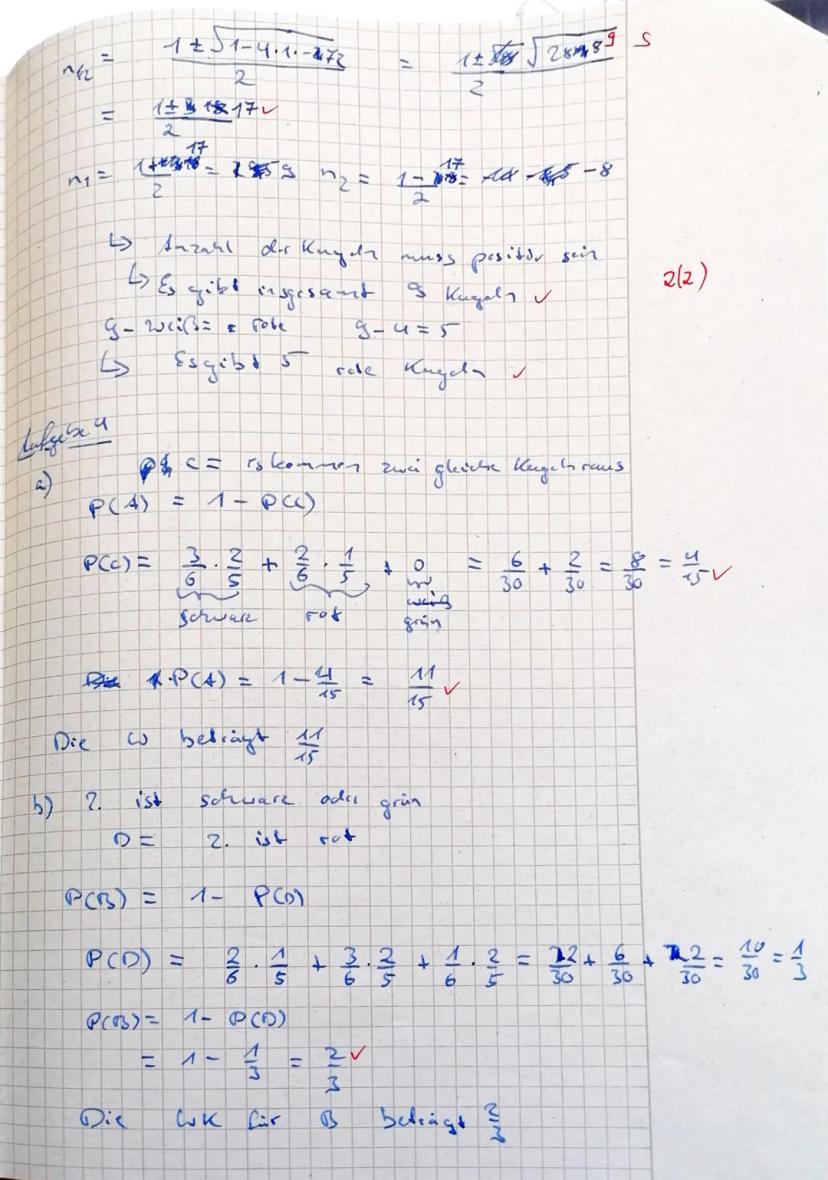 n1/2 = (1 ± √(1-4·1·-72)) / 2 = (1 ± √289) / 2 5
= (1 ± 17) / 2 ✓
n1 = (1+17) / 2 = 9 n2 = (1-17) / 2 = -8
↳ Anzahl der Kugeln muss positiv sein
↳ Es gibt insgesamt 9 Kugeln ✓ 2(2)
9 - weiß = rote 9-4=5
↳ Es gibt 5 rote Kugeln ✓
Aufgabe 4
a) C = es kommen zwei gleiche Kugeln raus
P(A) = 1 - P(C)
P(C) = 3/6 · 2/5 + 2/6 · 1/5 + 0 = 6/30 + 2/30 = 8/30 = 4/15 ✓
schwarz rot grün
P(A) = 1 - 4/15 = 11/15 ✓
Die W beträgt 11/15
b) 2. ist schwarz oder grün
D = 2. ist rot
P(B) = 1 - P(D)
P(D) = 2/6 · 1/5 + 3/6 · 2/5 + 1/6 · 2/5 = 2/30 + 6/30 + 2/30 = 10/30 = 1/3
P(B) = 1 - P(D)
= 1 - 1/3 = 2/3 ✓
Die WK für B beträgt 2/3